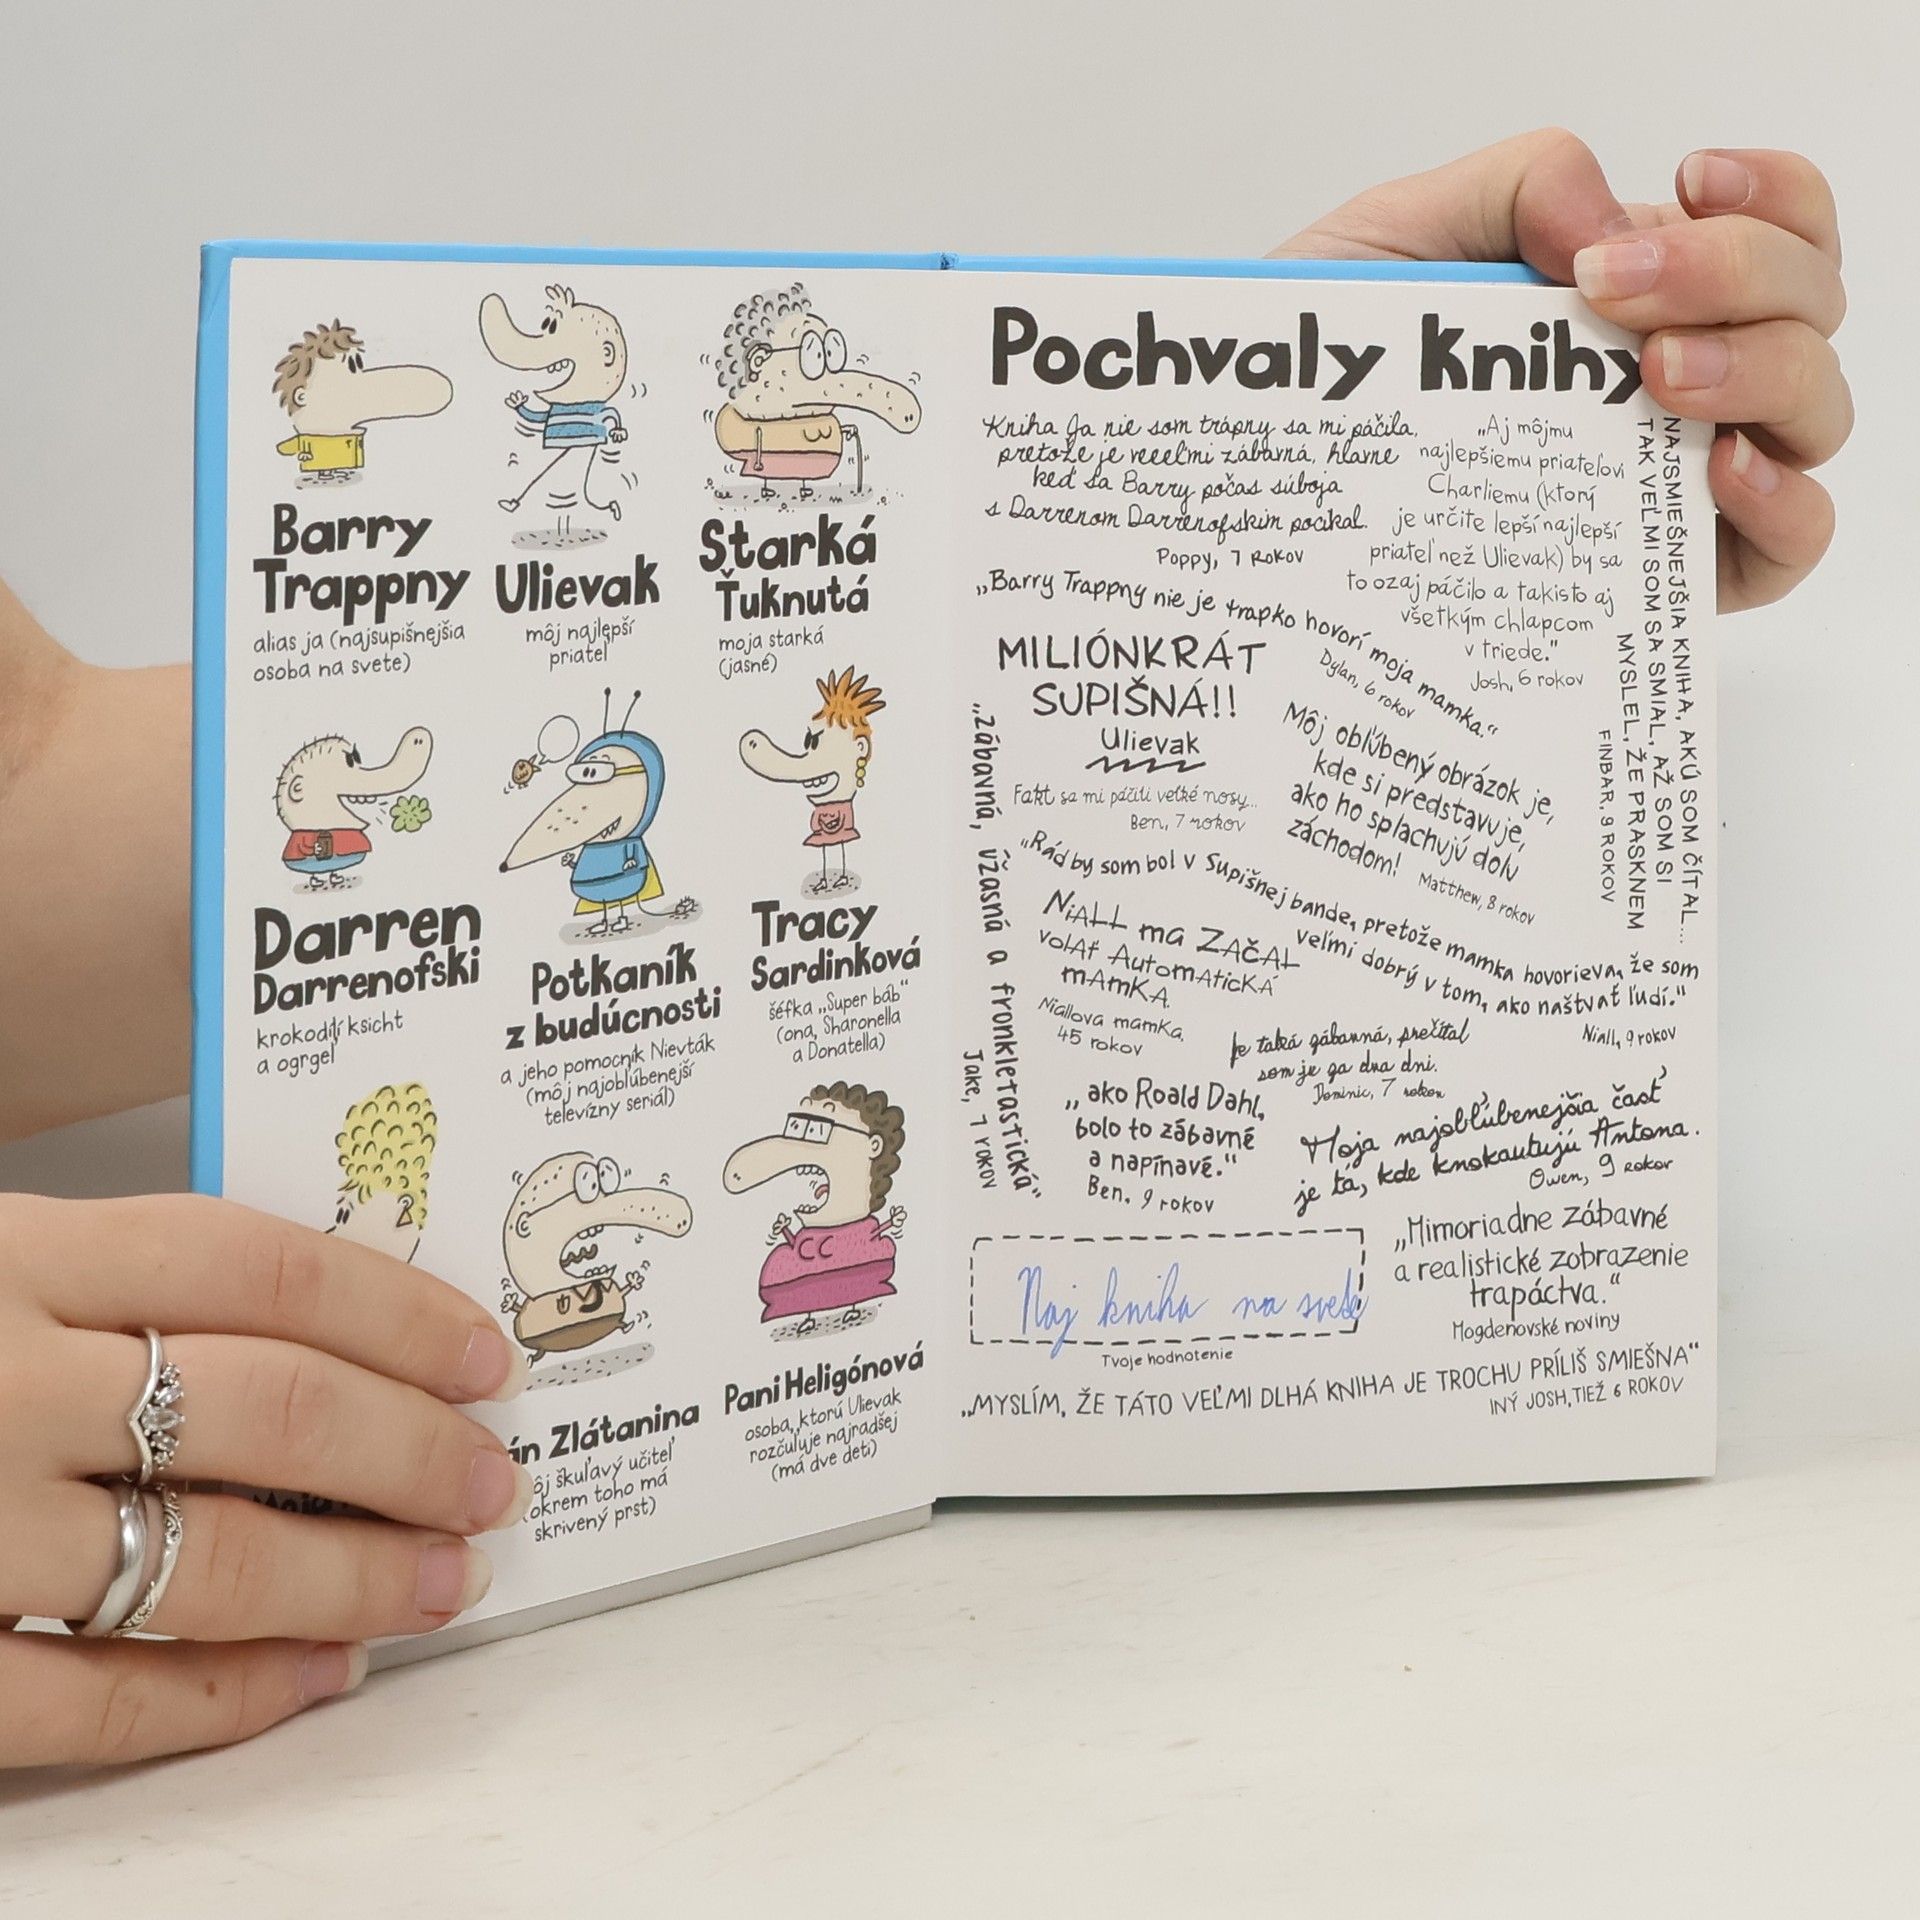 Barry
Trappny
alias ja (najsupišnejšia
osoba na svete)
Ulievak
môj najlepší
priateľ
Starká
Ťuknutá
moja starká
(jasné)
Darren
Darrenofski
krokodílí ksicht
a ogrgeľ
Potkaník
z budúcnosti
a jeho pomocník Nievták
(môj najobľúbenejší
televízny seriál)
Tracy
Sardinková
šéfka „Super báb“
(ona, Sharonella
a Donatella)
CC
án Zlátanina
ôj škuľavý učiteľ
(okrem toho má
skrivený prst)
Pani Heligónová
osoba, ktorú Ulievak
rozčuľuje najradšej
(má dve deti)
Pochvaly knihy
Kniha Ja nie som trápny sa mi páčila,
pretože je veeeľmi zábavná, hlavne
keď sa Barry počas súboja
s Darrenom Darrenofskim pocikal.
Poppy, 7 rokov
„Aj môjmu
najlepšiemu priateľovi
Charliemu (ktorý
je určite lepší najlepší
priateľ než Ulievak) by sa
to ozaj páčilo a takisto aj
všetkým chlapcom
v triede.“
Josh, 6 rokov
NAJSMIEŠNEJŠIA KNIHA, AKÚ SOM ČÍTAL...
TAK VEĽMI SOM SA SMIAL, AŽ SOM SI
MYSLEL, ŽE PRASKNEM
FINBAR, 9 ROKOV
„Barry Trappny nie je trapko hovorí moja mamka.“
Dylan, 6 rokov
MILIÓNKRÁT
SUPIŠNÁ!!
Ulievak
Fakt sa mi páčili veľké nosy...
Ben, 7 rokov
Môj obľúbený obrázok je,
kde si predstavuje,
ako ho splachujú dolu
záchodom!
Matthew, 8 rokov
„Zábavná, úžasná a fronkletastická“
Jake, 7 rokov
„Rád by som bol v Supišnej bande, pretože mamka hovorieva, že som
veľmi dobrý v tom, ako naštvať ľudí.“
Niall, 9 rokov
NiALL ma ZAČAL
volAť AutomAtickÁ
mAmKA.
Niallova mamka,
45 rokov
Je taká zábavná, prečítal
som je za dva dni.
Dominic, 7 rokov
„ako Roald Dahl,
bolo to zábavné
a napínavé.“
Ben, 9 rokov
Moja najobľúbenejšia časť
je tá, kde knokautujú Antona.
Owen, 9 rokov
Naj kniha na svete
Tvoje hodnotenie
„Mimoriadne zábavné
a realistické zobrazenie
trapáctva.“
Mogdenovské noviny
„MYSLÍM, ŽE TÁTO VEĽMI DLHÁ KNIHA JE TROCHU PRÍLIŠ SMIEŠNA“
INÝ JOSH, TIEŽ 6 ROKOV